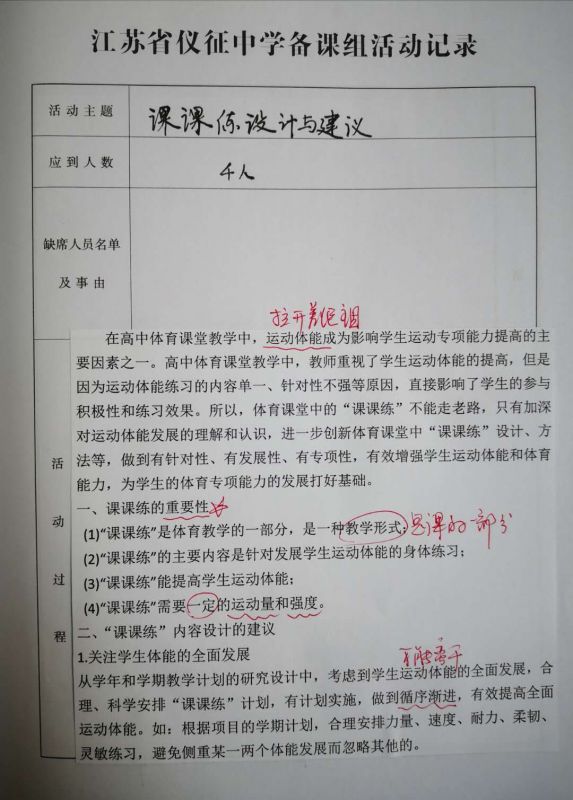 江苏省仪征中学备课组活动记录
活动主题
课课练设计与建议
应到人数
4人
缺席人员名单
及事由
活动过程
拉开差距主因
在高中体育课堂教学中，运动体能成为影响学生运动专项能力提高的主
要因素之一。高中体育课堂教学中，教师重视了学生运动体能的提高，但是
因为运动体能练习的内容单一、针对性不强等原因，直接影响了学生的参与
积极性和练习效果。所以，体育课堂中的“课课练”不能走老路，只有加深
对运动体能发展的理解和认识，进一步创新体育课堂中“课课练”设计、方
法等，做到有针对性、有发展性、有专项性，有效增强学生运动体能和体育
能力，为学生的体育专项能力的发展打好基础。
一、课课练的重要性
(1)“课课练”是体育教学的一部分，是一种教学形式；是课的一部分
(2)“课课练”的主要内容是针对发展学生运动体能的身体练习；
(3)“课课练”能提高学生运动体能；
(4)“课课练”需要一定的运动量和强度。
二、“课课练”内容设计的建议
1.关注学生体能的全面发展
从学年和学期教学计划的研究设计中，考虑到学生运动体能的全面发展，合
理、科学安排“课课练”计划，有计划实施，做到循序渐进，有效提高全面
运动体能。如：根据项目的学期计划，合理安排力量、速度、耐力、柔韧、
灵敏练习，避免侧重某一两个体能发展而忽略其他的。